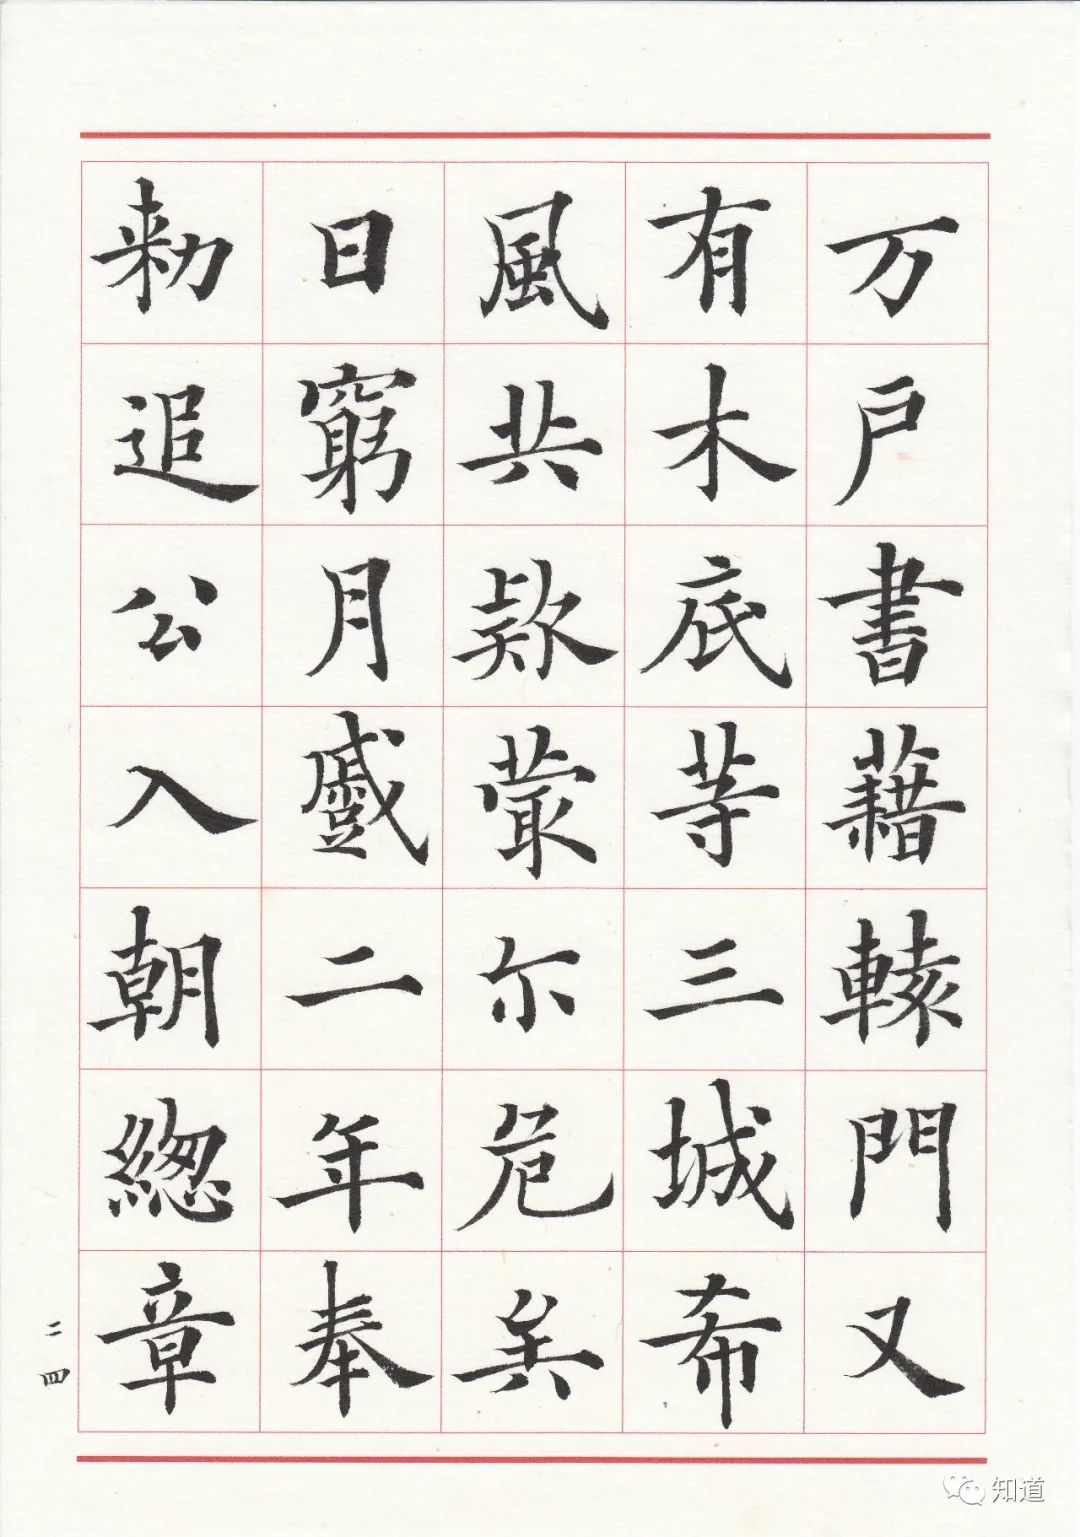 万户書藉轅門又
有木底等三城希
風共款蕞尒危矣
日窮月蹙二年奉
勑追公入朝緫章
二四
知道